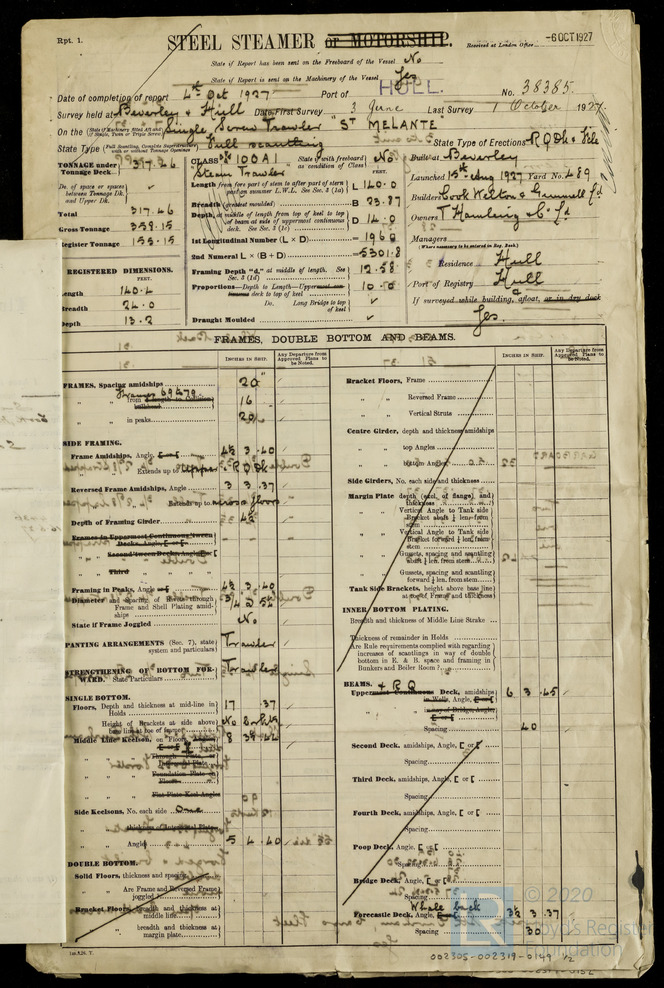 Rpt. 1.
STEEL STEAMER or MOTORSHIP.
Received at London Office
-6 OCT 1927
State if Report has been sent on the Freeboard of the Vessel No
State if Report is sent on the Machinery of the Vessel Yes
Date of completion of report 4th Oct 1927 Port of HULL No. 38385
Survey held at Beverley & Hull Date First Survey 3 June Last Survey 1 October 1927
On the Single Screw Trawler "ST MELANTE" State Type of Erections R.Q.Dk & Fcle
State Type Full scantling
TONNAGE under Tonnage Deck 317.46
Do. of space or spaces between Tonnage Dk. and Upper Dk.
Total 317.46
Gross Tonnage 358.15
Register Tonnage 155.15
REGISTERED DIMENSIONS.
FEET.
Length 140.4
Breadth 24.0
Depth 13.2
CLASS 100A1 State if with freeboard as condition of Class No
Steam Trawler FEET.
Length from fore part of stem to after part of stern post on summer L.W.L. See Sec. 3 (1a) L 140.0
Breadth (greatest moulded) B 23.87
Depth, at middle of length from top of keel to top of beam at side of uppermost continuous deck. See Sec. 3 (1c) D 14.0
1st Longitudinal Number (L × D) 1960
2nd Numeral L × (B + D) 5301.8
Framing Depth "d," at middle of length. See Sec. 3 (1d) 12.58
Proportions—Depth to Length—Uppermost continuous deck to top of keel 10.0
Do. Long Bridge to top of keel
Draught Moulded
Built at Beverley
Launched 15th Aug 1927 Yard No. 489
Builders Cook Welton & Gemmell Ld
Owners T Hamling & Co Ld
Managers
(Where necessary to be entered in Reg. Book)
Residence Hull
Port of Registry Hull
If surveyed while building, afloat, or in dry dock
Yes.
FRAMES, DOUBLE BOTTOM AND BEAMS.
INCHES IN SHIP.
Any Departure from Approved Plans to be Noted.
INCHES IN SHIP.
Any Departure from Approved Plans to be Noted.
FRAMES, Spacing amidships 20
" " from Frames 69 to 79 16
" " in peaks 20
SIDE FRAMING.
Frame Amidships, Angle, [ or [ 4½ 3 .40
" " Extends up to Upper & R Q Dk
Reversed Frame Amidships, Angle 3 3 .37
" " Extends up to across floors
Depth of Framing Girder 4½
Frames in Uppermost Continuous 'tween Decks, Angle, [ or [
" Second 'tween Decks, Angle, [ or [
" Third " " "
Framing in Peaks, Angle or [ 4½ 3 .40
Diameter and spacing of Rivets through Frame and Shell Plating amidships
State if Frame Joggled No
PANTING ARRANGEMENTS (Sec. 7), state system and particulars Trawler
STRENGTHENING OF BOTTOM FORWARD. State Particulars Trawler
SINGLE BOTTOM.
Floors, Depth and thickness at mid-line in Holds 17 .37
Height of Brackets at side above base line at toe of frames No Brkts
Middle Line Keelson, on Floors, Angles, [ or [ 8
" " Through Plate, or Intercostal Plate
" " Foundation Plate on Floors
" " Flat Plate Keel Angles
Side Keelsons, No. each side One
" thickness of Intercostal Plates
" Angles 5 4 .40
DOUBLE BOTTOM.
Solid Floors, thickness and spacing
" Are Frame and Reversed Frame joggled
Bracket Floors, breadth and thickness at middle line
" breadth and thickness at margin plate
Bracket Floors, Frame
" " Reversed Frame
" " Vertical Struts
Centre Girder, depth and thickness amidships
" " top Angles
" " bottom Angles
Side Girders, No. each side and thickness
Margin Plate depth (excl. of flange) and thickness
" " Vertical Angle to Tank side Bracket abaft ¼ len. from stem
" " Vertical Angle to Tank side Bracket forward ¼ len. from stem
" " Gussets, spacing and scantling abaft ¼ len. from stem
" " Gussets, spacing and scantling forward ¼ len. from stem
Tank Side Brackets, height above base line at toe of Frame and thickness
INNER BOTTOM PLATING.
Breadth and thickness of Middle Line Strake
Thickness of remainder in Holds
Are Rule requirements complied with regarding increases of scantlings in way of double bottom in E. & B. space and framing in Bunkers and Boiler Room?
BEAMS. & R Q
Uppermost Continuous Deck, amidships in Wells, Angle, [ or [ 6 3 .45
" in way of Bridge, Angle, [ or [
Spacing 40
Second Deck, amidships, Angle, [ or [
Spacing
Third Deck, amidships, Angle, [ or [
Spacing
Fourth Deck, amidships, Angle, [ or [
Spacing
Poop Deck, Angle, [ or [
Spacing
Bridge Deck, Angle, [ or [
Spacing
Whale back
Forecastle Deck, Angle, [ or [ 3½ 3 .37
Spacing 30
© 2020
Lloyd's Register
Foundation
002305-002319-0149 1/2